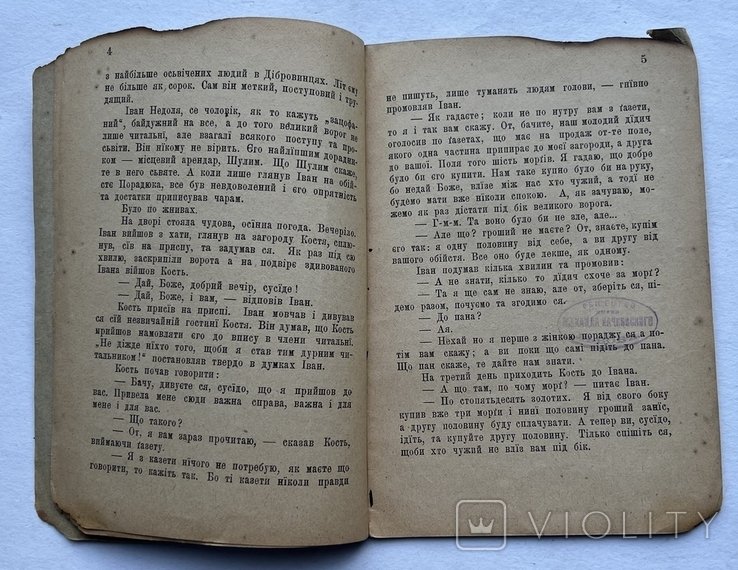 4
з найбільше осьвічених людий в Дібровинцях. Літ єму
не більше як сорок. Сам він меткий, поступовий і тру-
дящий.
Іван Недоля, се чоловік, як то кажуть „зацофа-
ний“, байдужний на все, а до того великий ворог не
лише читальні, але взагалі всякого поступу та про-
сьвіти. Він нікому не вірить. Єго найліпшим дорадни-
ком — місцевий арендар, Шулим. Що Шулим скаже,
те в него сьвяте. А коли лише глянув Іван на обій-
стє Порадюка, все був невдоволений і єго опрятність
та достатки приписував чарам.
Було по жнивах.
На дворі стояла чудова, осінна погода. Вечеріло.
Іван вийшов з хати, глянув на загороду Костя, сплю-
нув, сїв на приспу, та задумав ся. Як раз під сю
хвилю, заскрипіли ворота а на подвірє здивованого
Івана війшов Кость.
— Дай, Боже, добрий вечір, сусїде!
— Дай, Боже, і вам, — відповів Іван.
Кость присів на приспі. Іван мовчав і дивував
ся сїй незвичайній гостині Костя. Він думав, що Кость
прийшов намовляти єго до впису в члени читальні.
„Не діжде ніхто того, щоби я став тим дурним чи-
тальником!“ постановляв твердо в думках Іван.
Кость почав говорити:
— Бачу, дивуєте ся, сусїдо, що я прийшов до
вас. Привела мене сюди важна справа, важна і для
мене і для вас.
— Що такого?
— От, я вам зараз прочитаю, — сказав Кость,
виймаючи ґазету.
— Я з казети нічого не потребую, як маєте що
говорити, то кажіть так. Бо ті казети ніколи правди
5
не пишуть, лише туманять людям голови, — гнївно
промовляв Іван.
— Як гадаєте; коли не по нутру вам з ґазети,
то я і так вам скажу. От, бачите, наш молодий дїдич
оголосив по ґазетах, що має на продаж от-те поле,
якого одна частина припирає до моєї загороди, а друга
до вашої. Поля того шість морґів. Я гадаю, що добре
було би єго купити. Нам таке купно було би на руку,
бо недай Боже, влізе між нас хто чужий, а тоді не
будемо мати вже ніколи спокою. А, як зачуваю, мо-
жемо як раз дістати під бік великого ворога.
— Г-м-м. Та воно було би не зле, але...
— Але що? грошей не маєте? От, знаєте, купім
єго так: я одну половину від себе, а ви другу від
вашого обійстя. Все оно буде лекше, як одному.
Іван подумав кілька хвилин та промовив:
— А не знати, кілько то дїдич схоче за морґ?
— Та я ще сам не знаю, але от, зберіть ся, пі-
демо разом, почуємо та згодимо ся.
— До пана?
— Ая.
— Нехай но я перше з жінкою пораджу ся а по-
тім вам скажу; а ви поки що самі підїть до пана.
Що пан скаже, те дайте нам знати.
На третий день приходить Кость до Івана.
— А що там, по чому морґ? — питає Іван.
— По стопятьдесять золотих. Я від свого боку
купив вже три морґи і нині половину гроший заніс,
а другу половину буду сплачувати. А тепер ви, сусїдо,
ідїть, та купуйте другу половину. Тілько спішіть ся,
щоби хто чужий не влїз вам під бік.
VIOLITY